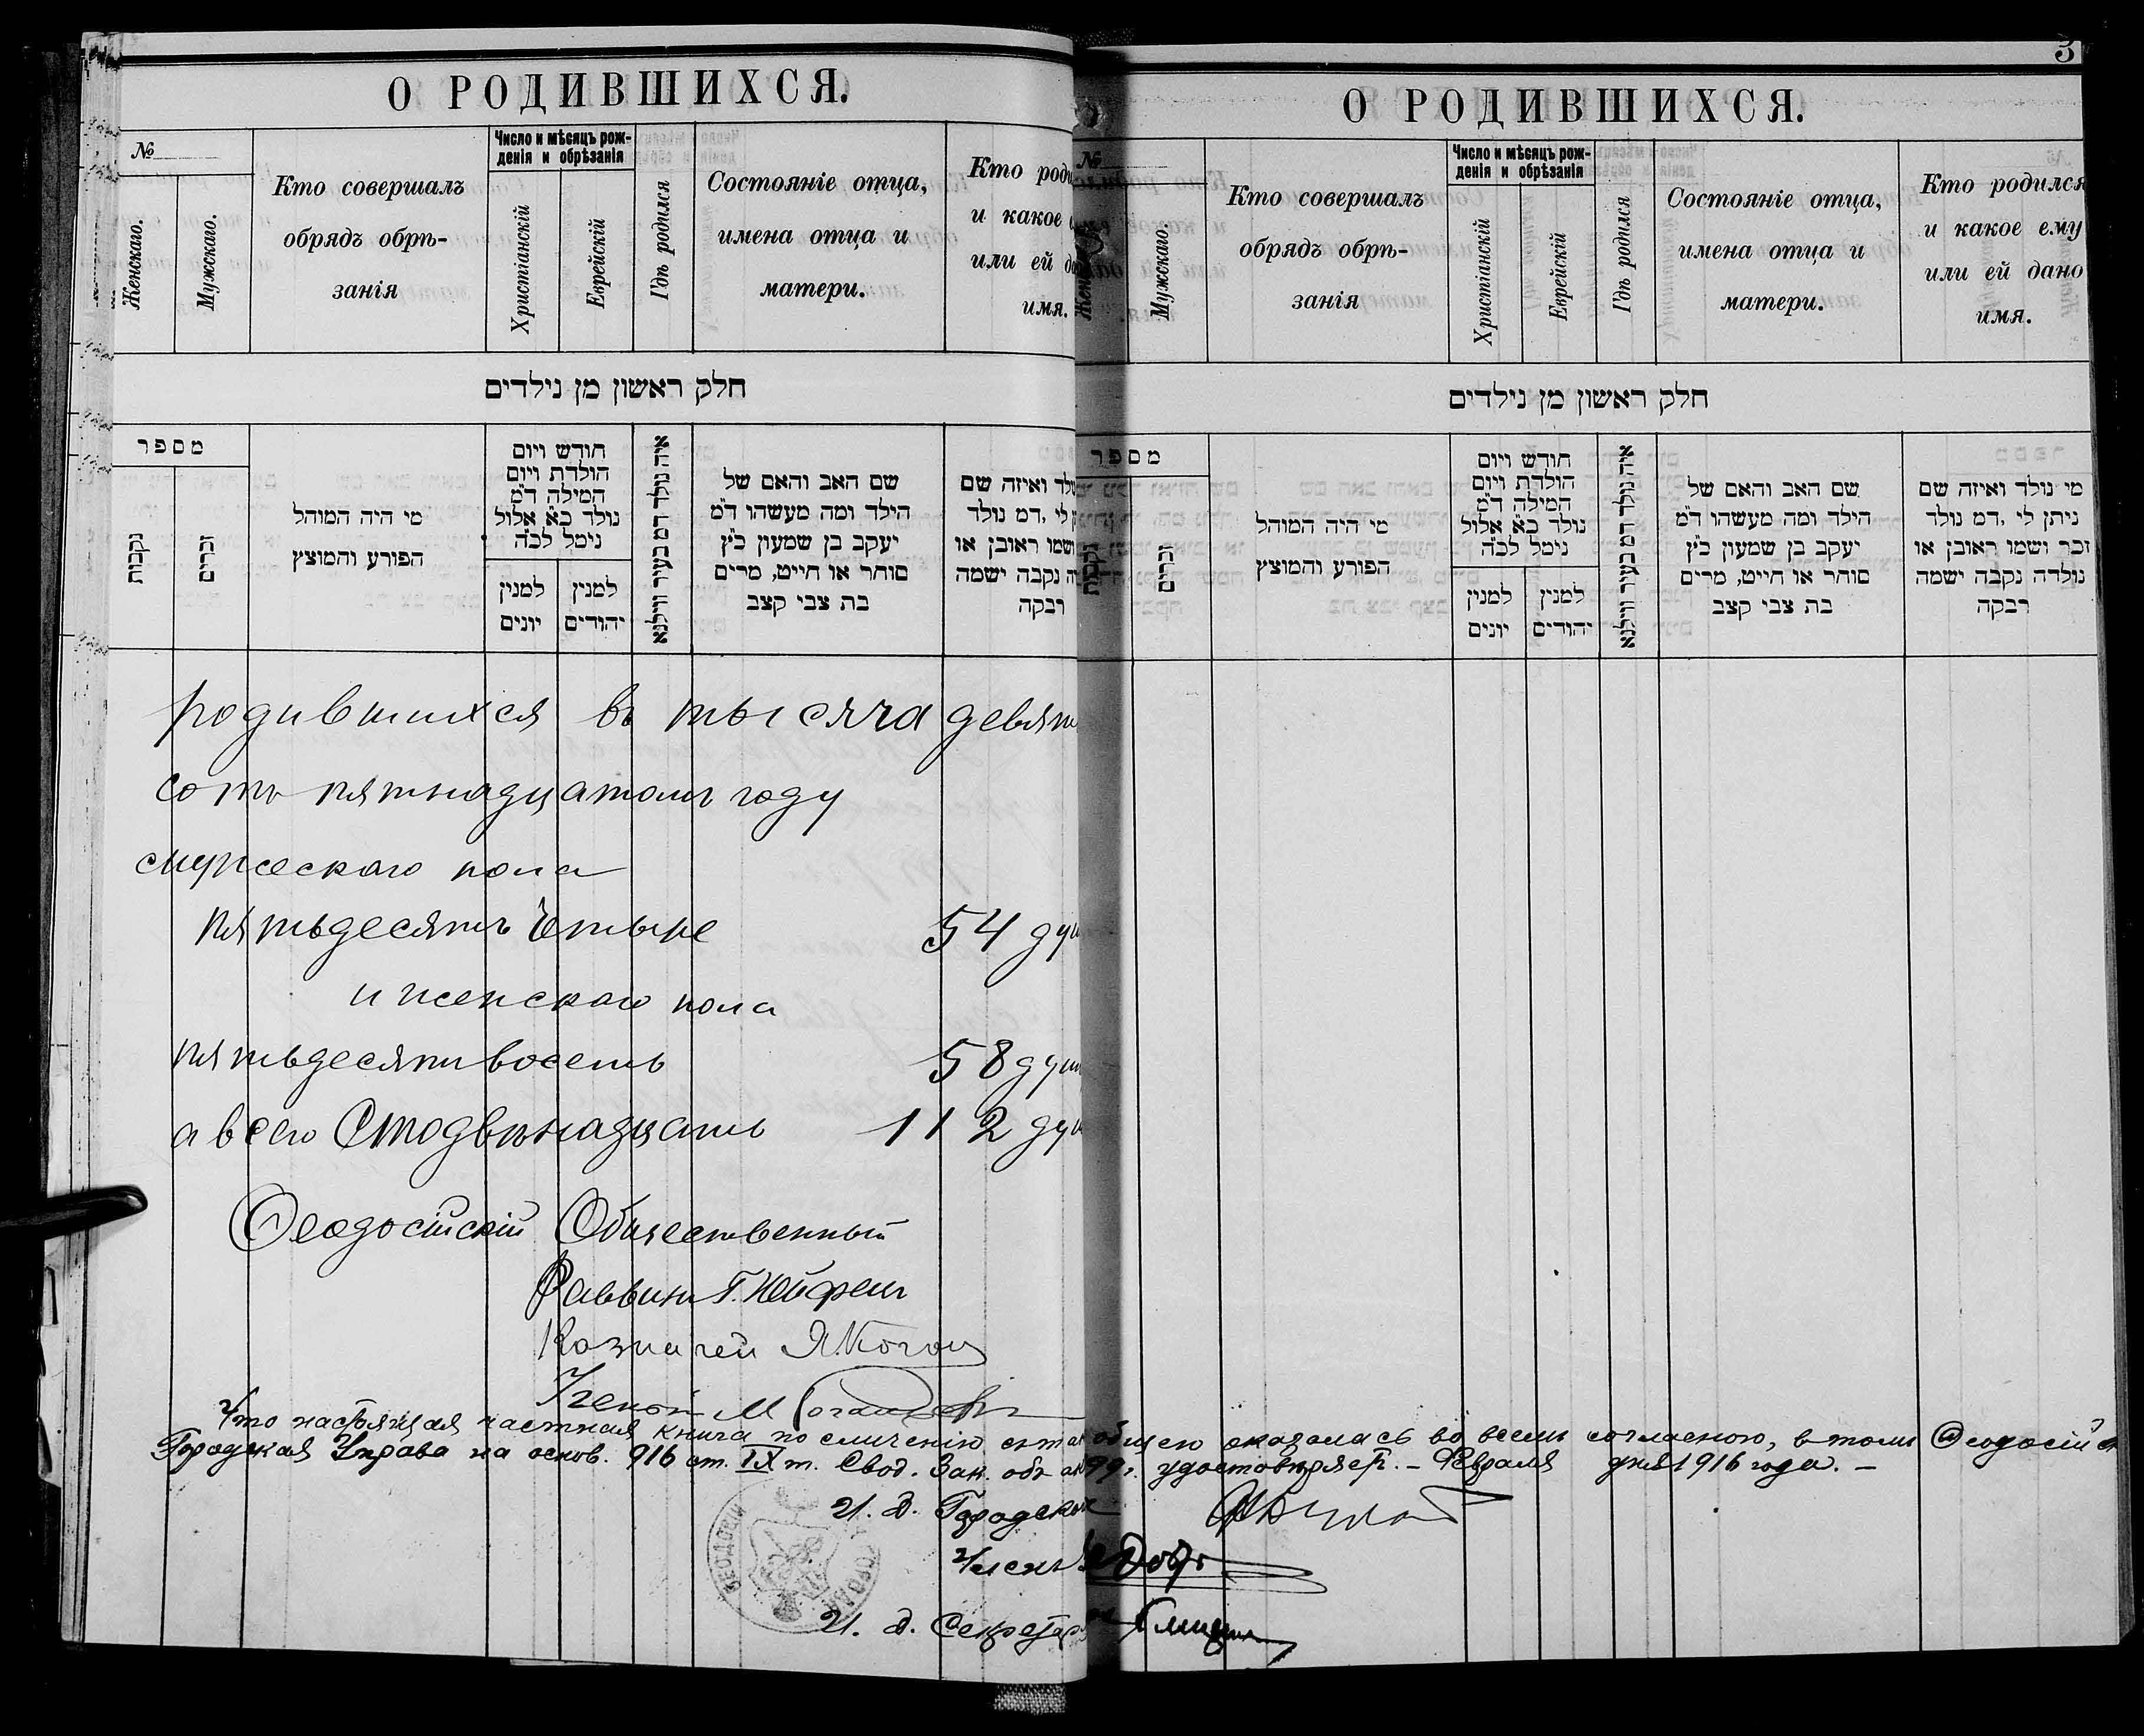 О РОДИВШИХСЯ.
№
Женскаго.
Мужскаго.
Кто совершалъ
обрядъ обрѣ-
занія
Число и мѣсяцъ рож-
денія и обрѣзанія
Христіанскій
Еврейскій
Гдѣ родился
Состояніе отца,
имена отца и
матери.
Кто роди
и какое
или ей
имя.
חלק ראשון מן נילדים
מספר
נקבות
זכרים
מי היה המוהל
הפורע והמוצץ
חודש ויום
הולדת ויום
המילה ד״מ
נולד כ״א אלול
נימל לכ״ה
למנין
יונים
למנין
יהודים
איה נולד דמ בעיר ווילנא
שם האב והאם של
הילד ומה מעשהו ד״מ
יעקב בן שמעון כ״ץ
סוחר או חייט, מרים
בת צבי קצב
ולד ואיזה שם
לי ,דמ נולד
ושמו ראובן או
נקבה ישמה
רבקה
родившихся въ тысяча девят
сотъ пятнадцатомъ году
мужескаго пола
пятьдесятъ четыре 54 душ
и женскаго пола
пятьдесятъ восемь 58 душ
а всего Стодвѣнадцать 112 душ
Ѳеодосійскій Общественный
Раввинъ
Казначей Я Коган
Ученый М
Что настоящая частная книга по сличенію съ таковою общею оказалась во всемъ согласною, въ томъ Ѳеодосійск
Городская Управа на основ. 916 ст. IX т. Свод. Зак. объ ак 99 г. удостовѣряетъ. – Февраля дня 1916 года. –
И. д. Городск
Членъ
И. д. Секретар
3
О РОДИВШИХСЯ.
№
Мужскаго.
Кто совершалъ
обрядъ обрѣ-
занія
Число и мѣсяцъ рож-
денія и обрѣзанія
Христіанскій
Еврейскій
Гдѣ родился
Состояніе отца,
имена отца и
матери.
Кто родился
и какое ему
или ей дано
имя.
חלק ראשון מן נילדים
מספר
נקבות
זכרים
מי היה המוהל
הפורע והמוצץ
חודש ויום
הולדת ויום
המילה ד״מ
נולד כ״א אלול
נימל לכ״ה
למנין
יונים
למנין
יהודים
איה נולד דמ בעיר ווילנא
שם האב והאם של
הילד ומה מעשהו ד״מ
יעקב בן שמעון כ״ץ
סוחר או חייט, מרים
בת צבי קצב
מי נולד ואיזה שם
ניתן לי ,דמ נולד
זכר ושמו ראובן או
נולדה נקבה ישמה
רבקה